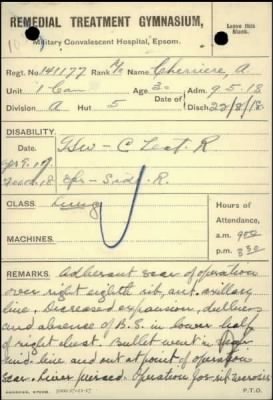 REMEDIAL TREATMENT GYMNASIUM,
Military Convalescent Hospital, Epsom.
Leave this Blank.
Regt. No. 141177 Rank Name Cherriere, A
Unit 1 Can Age 30 Adm. 9.5.18
Division A Hut 5 Date of Disch. 22/8/18
DISABILITY. GSW - C Lect. R
Date
Opr - Side R.
CLASS Lung
Hours of Attendance,
MACHINES.
a.m. 900
p.m. 330
REMARKS. Adherant scar of operation
over right eighth rib, ant. axillary
line. Decreased expansion, dullness
and absence of B.S. in lower half
of right chest. Bullet went in
mid. line and out at point of operation
scar. Liver pierced. Operation for rib
P.T.O.